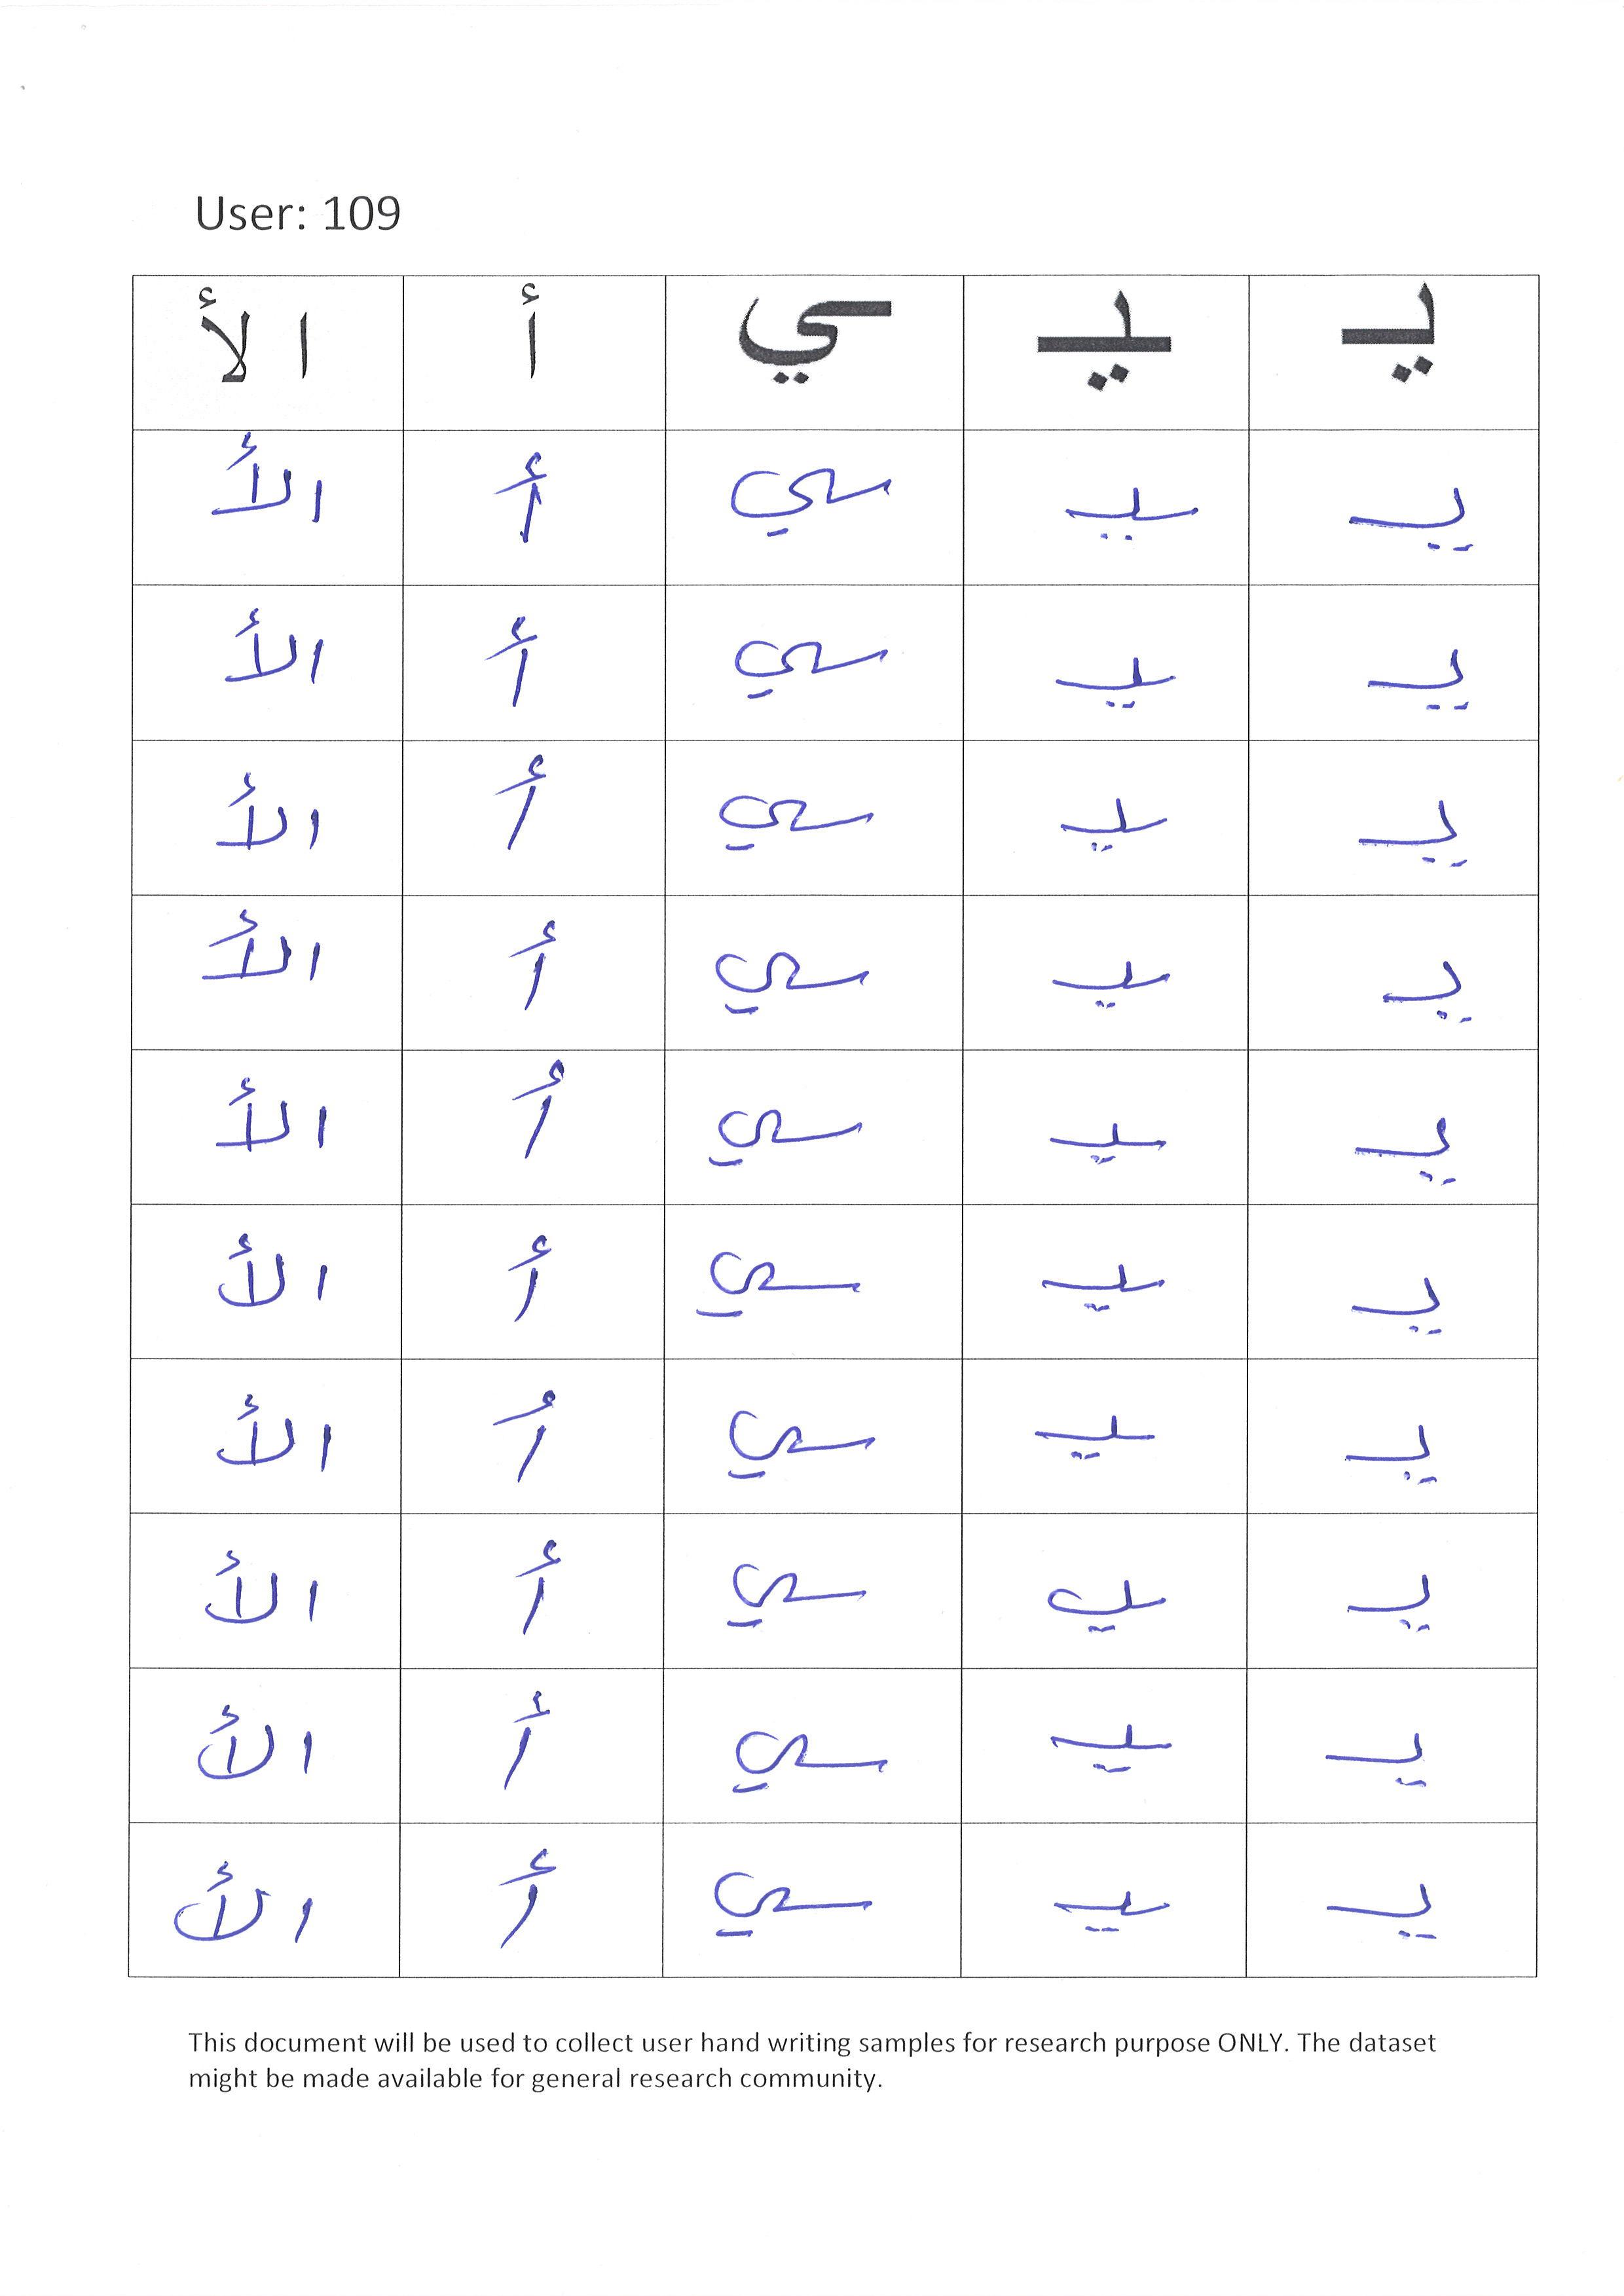 User: 109
يـ ـيـ ـي أ ا لأ
يـ ـيـ ـي أ الأ
يـ ـيـ ـي أ الأ
يـ ـيـ ـي أ الأ
يـ ـيـ ـي أ الأ
يـ ـيـ ـي أ الأ
يـ ـيـ ـي أ الأ
يـ ـيـ ـي أ الأ
يـ ـيـ ـي أ الأ
يـ ـيـ ـي أ الأ
يـ ـيـ ـي أ الأ
This document will be used to collect user hand writing samples for research purpose ONLY. The dataset
might be made available for general research community.